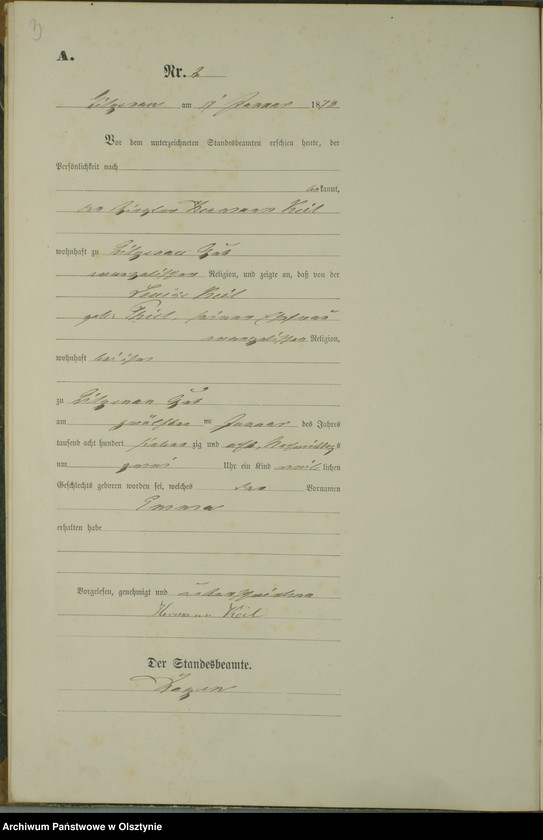 A.
Nr. 2
am 17 Januar 1878
Vor dem unterzeichneten Standesbeamten erschien heute, der
Persönlichkeit nach
bekannt,
der Hermann Keil
wohnhaft zu Gut
evangelischer Religion, und zeigte an, daß von der
Keil
geb. Thiel, seiner Ehefrau
evangelischer Religion,
wohnhaft bei ihm
zu Gut
am zwölften Januar des Jahres
tausend acht hundert sieben zig und acht, Nachmittags
um zwei Uhr ein Kind weib lichen
Geschlechts geboren worden sei, welches den Vornamen
Emma
erhalten habe
Vorgelesen, genehmigt und unterschrieben
Hermann Keil
Der Standesbeamte.
Archiwum Państwowe w Olsztynie